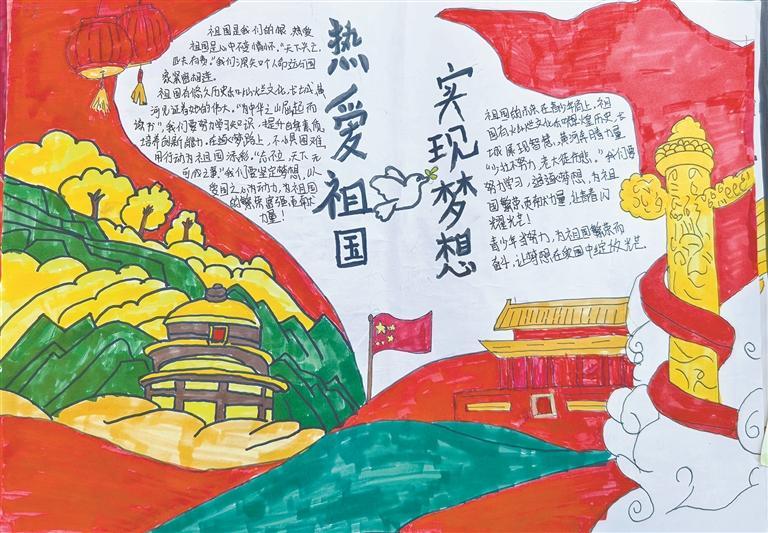 热爱祖国
实现梦想
祖国是我们的根,热爱
祖国是心中不变情怀。"天下兴亡,
匹夫有责。"我们深知个人命运与国
家紧密相连。
祖国有悠久历史和灿烂文化,长城、黄
河见证着她的伟大。"为中华之崛起而
读书",我们要努力学习知识,提升自身素质,
培养创新能力。在追梦路上,不惧困难,
用行动为祖国添彩。
我们要坚定梦想,以
爱国之心为动力,为祖国
的繁荣富强贡献
力量!
祖国的未来在青少年肩上。祖
国有灿烂文化和辉煌历史,长
城展现智慧,黄河奔腾力量。
"少壮不努力,老大徒伤悲。"我们要
努力学习,追逐梦想,为祖
国繁荣贡献力量,让青春闪
耀光芒!
青少年当努力,为祖国繁荣而
奋斗,让梦想在爱国中绽放光芒。